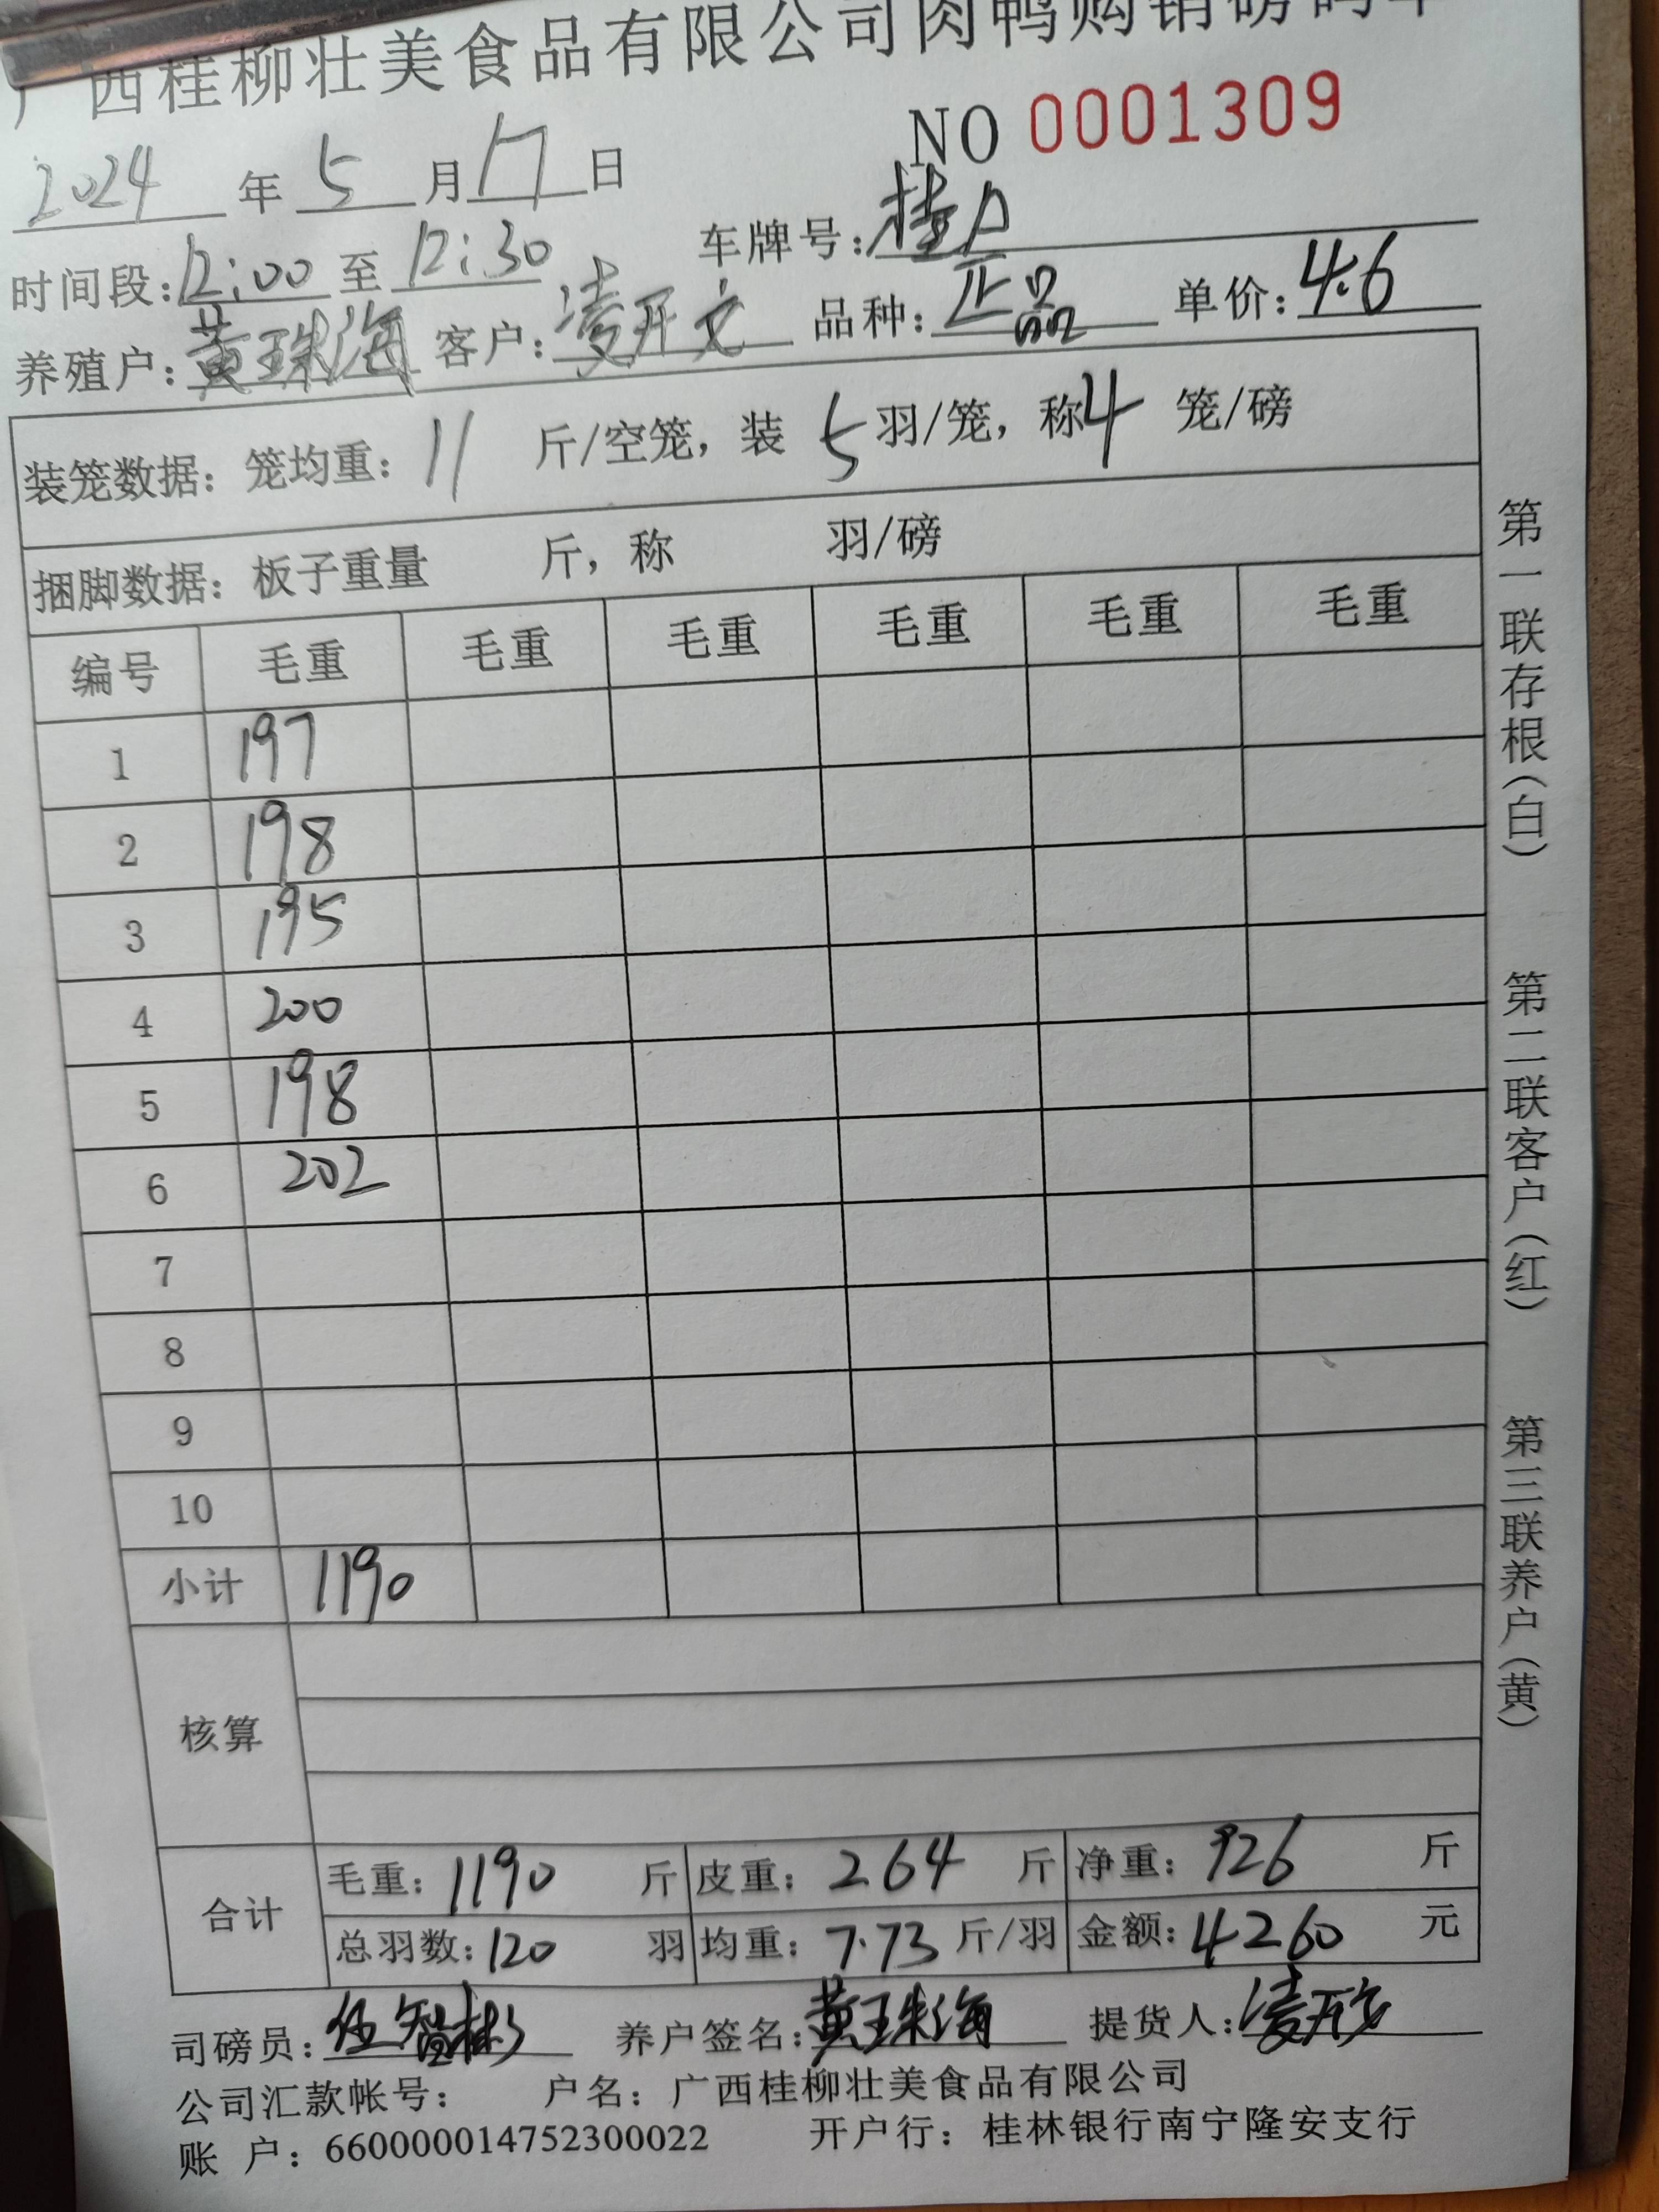 广西桂柳壮美食品有限公司肉鸭购销磅码单
NO 0001309
2024 年 5 月 17 日
车牌号：桂A
时间段：12:00 至 12:30
养殖户：黄珠海 客户：凌开文 品种：正品 单价：4.6
装笼数据：笼均重：11 斤/空笼，装 5 羽/笼，称 4 笼/磅
捆脚数据：板子重量 斤，称 羽/磅
编号 毛重 毛重 毛重 毛重 毛重 毛重
1 197
2 198
3 195
4 200
5 198
6 202
7
8
9
10
小计 1190
核算
合计 毛重：1190 斤 皮重：264 斤 净重：926 斤
总羽数：120 羽 均重：7.73 斤/羽 金额：4260 元
司磅员：伍智彬 养户签名：黄珠海 提货人：凌开文
公司汇款帐号： 户名：广西桂柳壮美食品有限公司
账 户：660000014752300022 开户行：桂林银行南宁隆安支行
第一联存根（白）
第二联客户（红）
第三联养户（黄）